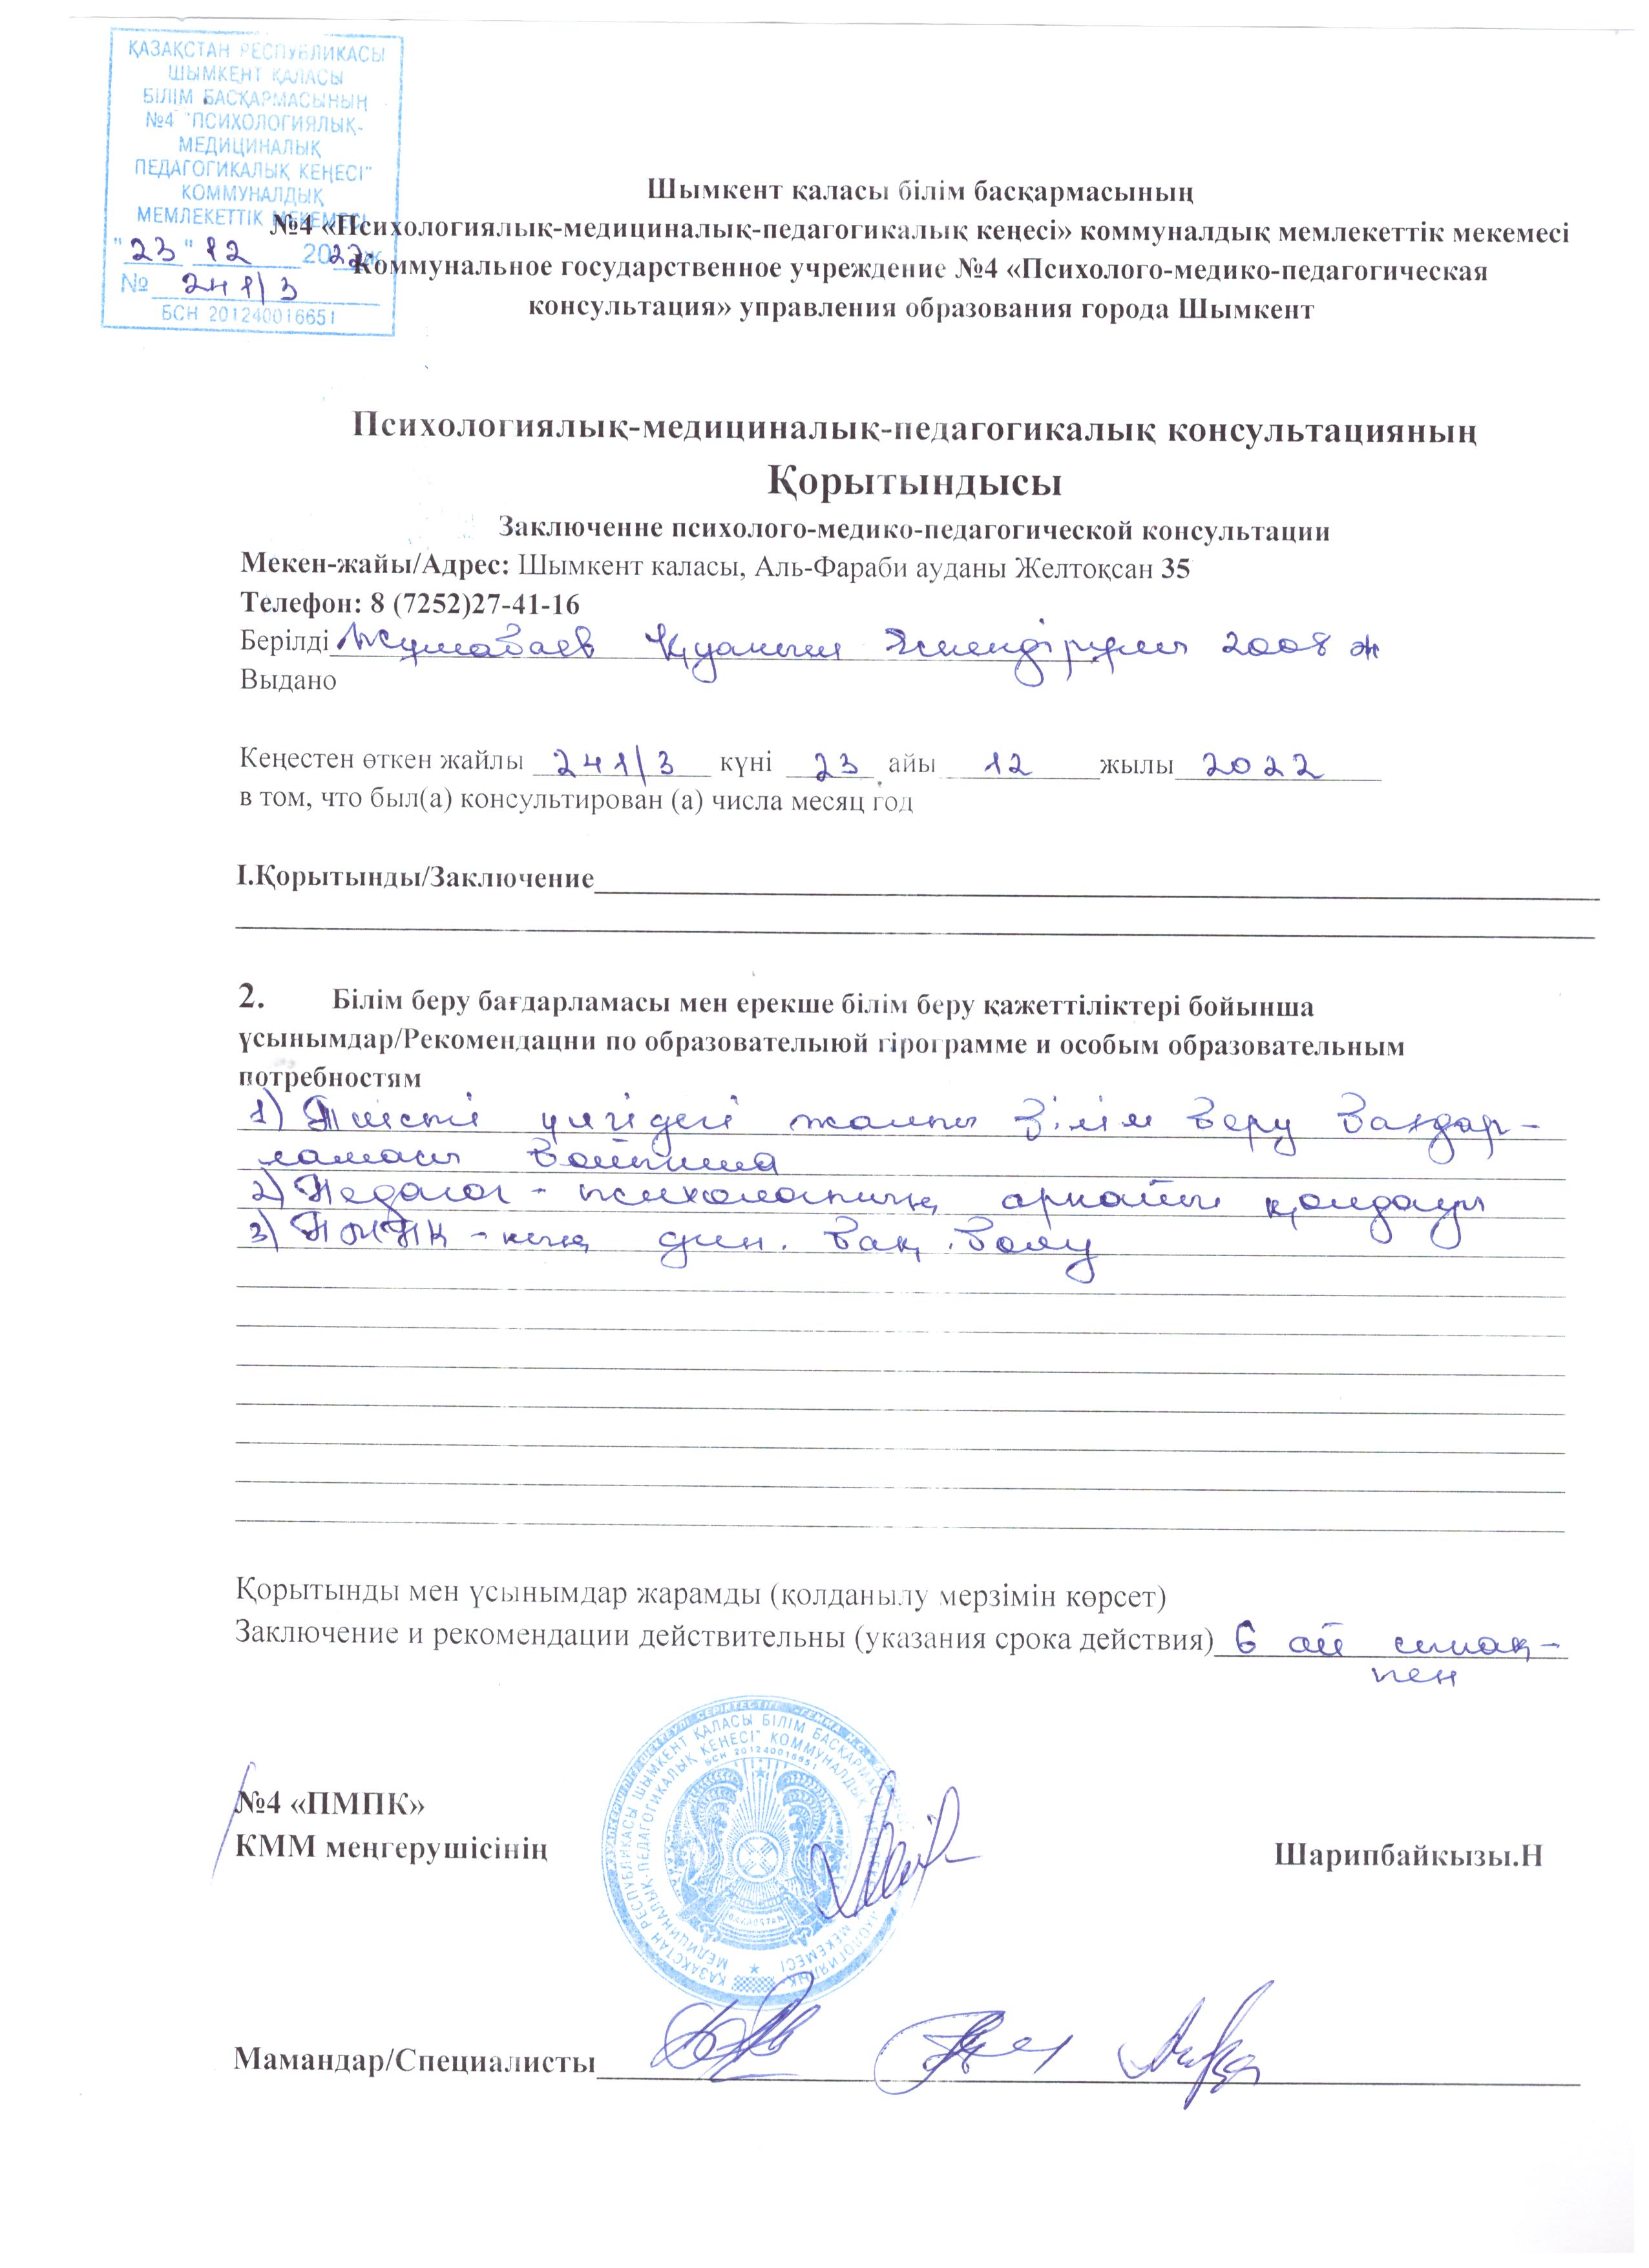 ҚАЗАҚСТАН РЕСПУБЛИКАСЫ
ШЫМКЕНТ ҚАЛАСЫ
БІЛІМ БАСҚАРМАСЫНЫҢ
№4 "ПСИХОЛОГИЯЛЫҚ-
МЕДИЦИНАЛЫҚ
ПЕДАГОГИКАЛЫҚ КЕҢЕСІ"
КОММУНАЛДЫҚ
МЕМЛЕКЕТТІК МЕКЕМЕСІ
"23" 12 2022ж
№ 241/3
БСН 201240016651
Шымкент қаласы білім басқармасының
№4 «Психологиялық-медициналық-педагогикалық кеңесі» коммуналдық мемлекеттік мекемесі
Коммунальное государственное учреждение №4 «Психолого-медико-педагогическая
консультация» управления образования города Шымкент
Психологиялық-медициналық-педагогикалық консультацияның
Қорытындысы
Заключенне психолого-медико-педагогической консультации
Мекен-жайы/Адрес: Шымкент каласы, Аль-Фараби ауданы Желтоқсан 35
Телефон: 8 (7252)27-41-16
Берілді Жумабаев Қуаныш 2008 ж
Выдано
Кеңестен өткен жайлы 241/3 күні 23 айы 12 жылы 2022
в том, что был(а) консультирован (а) числа месяц год
I.Қорытынды/Заключение
2. Білім беру бағдарламасы мен ерекше білім беру қажеттіліктері бойынша
ұсынымдар/Рекомендацни по образователыюй гірограмме и особым образовательным
потребностям
1) Тиісті үлгідегі жалпы білім беру бағдар-
ламасы бойынша
2) Педагог-психологтың арнайы қолдауы
3) ПМПК-ның дин. бақ. болу
Қорытынды мен ұсынымдар жарамды (қолданылу мерзімін көрсет)
Заключение и рекомендации действительны (указания срока действия) 6 ай сынақ-
пен
№4 «ПМПК»
КММ меңгерушісінің Шарипбайкызы.Н
Мамандар/Специалисты